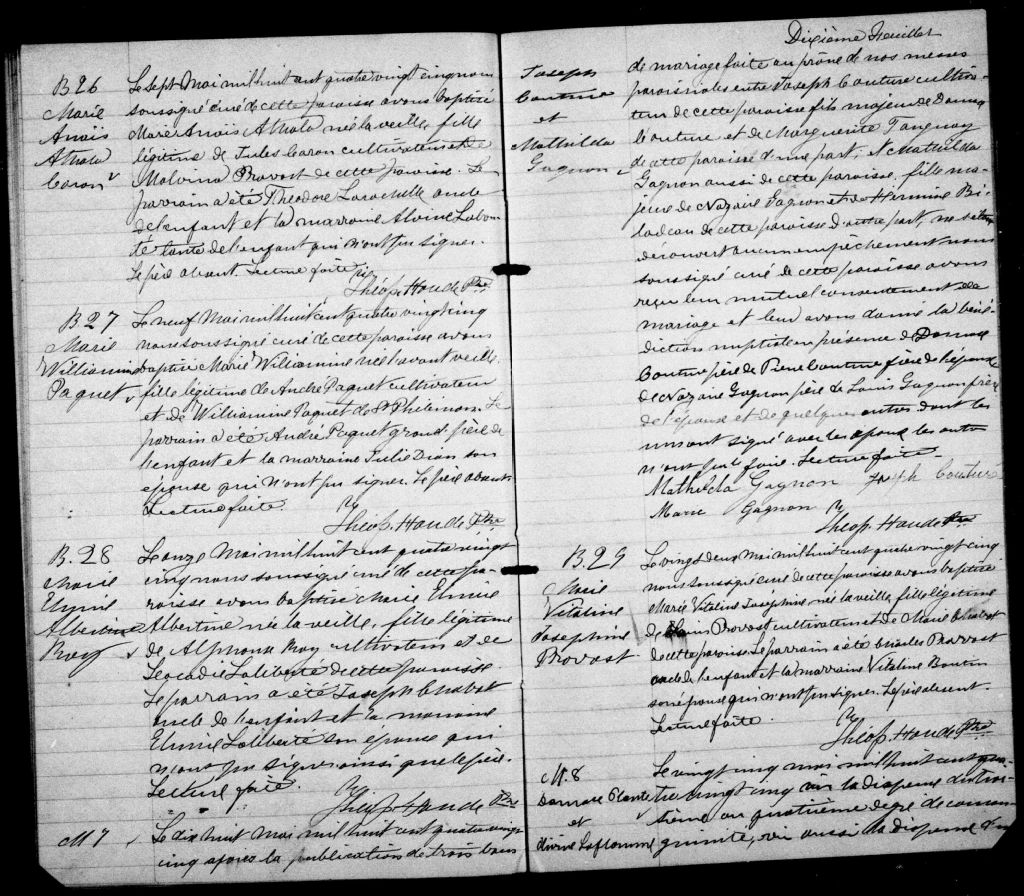 B 26
Marie
Anaïs
Athala
Caron
Le sept Mai mil huit cent quatre vingt cinq nous
soussigné curé de cette paroisse avons baptisé
Marie Anaïs Athala née la veille, fille
légitime de Jules Caron cultivateur et de
Malvina Provost de cette paroisse. Le
parrain a été Théodore Larochelle oncle
de l'enfant et la marraine Alvine Labon
té tante de l'enfant qui n'ont pu signer.
Le père absent. Lecture faite
Théop. Houde Ptre
B 27
Marie
Williamine
Paquet
Le neuf Mai mil huit cent quatre vingt cinq
nous soussigné curé de cette paroisse avons
baptisé Marie Williamine née l'avant veille
fille légitime de André Paquet cultivateur
et de Williamine Paquet de St Philémon. Le
parrain a été André Paquet grand-père de
l'enfant et la marraine Julie Dion son
épouse qui n'ont pu signer. Le père absent
Lecture faite.
Théop. Houde Ptre
B. 28
Marie
Elmire
Albertine
Roy
Le onze Mai mil huit cent quatre vingt
cinq nous soussigné curé de cette pa-
roisse avons baptisé Marie Elmire
Albertine née la veille, fille légitime
de Alphonse Roy cultivateur et de
Léocadie Laliberté de cette paroisse
Le parrain a été Joseph Chabot
oncle de l'enfant et la marraine
Elmire Laliberté son épouse qui
n'ont pu signer ainsi que le père.
Lecture faite.
Théop. Houde Ptre
M 7
Le dix huit Mai mil huit cent quatre vingt
cinq après la publication de trois bans
Dixième Feuillet
Joseph
Couture
et
Mathilda
Gagnon
de mariage faite au prône de nos messes
paroissiales entre Joseph Couture cultiva-
teur de cette paroisse fils majeur de Damase
Couture et de Marguerite Tanguay
de cette paroisse d'une part, & Mathilda
Gagnon aussi de cette paroisse, fille ma-
jeure de Nazaire Gagnon et de Hermine Bi-
lodeau de cette paroisse d'autre part, ne s'étant
découvert aucun empêchement nous
soussigné curé de cette paroisse avons
reçu leur mutuel consentement de
mariage et leur avons donné la béné-
diction nuptiale en présence de Damase
Couture père de Pierre Couture frère de l'époux
de Nazaire Gagnon père de Louis Gagnon frère
de l'épouse et de quelques autres dont les
uns ont signé avec les époux les autres
n'ont pu le faire. Lecture faite.
Mathilda Gagnon Joseph Couture
Marie Gagnon
Théop. Houde Ptre
B. 29
Marie
Vitaline
Josephine
Provost
Le vingt deux Mai mil huit cent quatre vingt cinq
nous soussigné curé de cette paroisse avons baptisé
Marie Vitaline Joséphine née la veille, fille légitime
de Louis Provost cultivateur et de Marie Chabot
de cette paroisse. Le parrain a été Charles Provost
oncle de l'enfant et la marraine Vitaline Boutin
son épouse qui n'ont pu signer. Le père absent.
Lecture faite.
Théop. Houde Ptre
M. 8
Damase Plante
et
divine Laflamme
Le vingt cinq mai mil huit cent qua-
tre vingt cinq vu la dispense du troi-
sième au quatrième degré de consan
guinité, vu aussi la dispense d'un